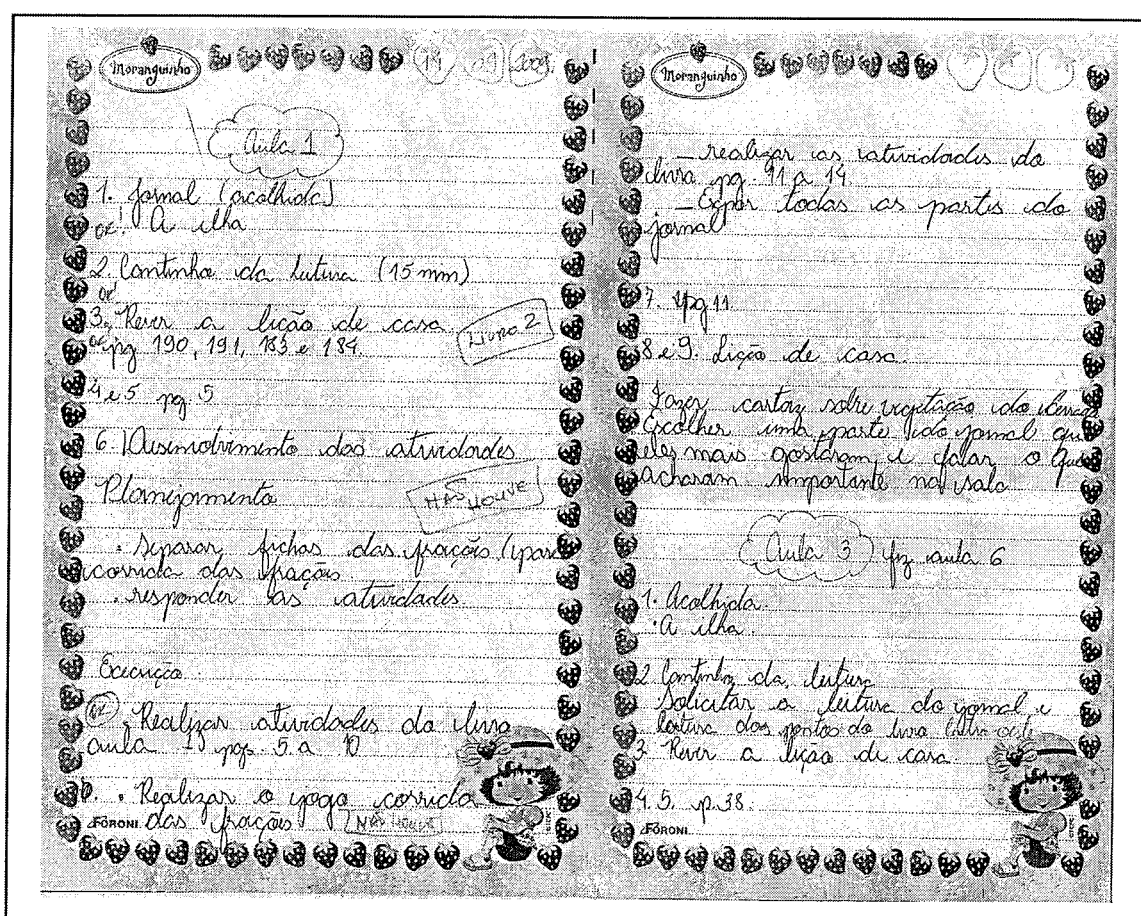 Moranguinho
19 09 2009
Aula 1
1. Jornal (acolhida)
OK! A ilha
2. Cantinho da leitura (15 mm)
OK!
3. Rever a lição de casa
LIVRO 2
OK pg 190, 191, 183 e 184.
4 e 5 pg 5
6. Desenvolvimento das atividades
Planejamento
NÃO HOUVE
. Separar fichas das frações (para
corrida das frações
. responder as atividades.
Execução
OK . Realizar atividades do livro
aula 1 pgs. 5 a 10
. Realizar o jogo corrida
das frações NÃO HOUVE
FORONI
Moranguinho
_ realizar as atividades do
livro pg. 11 a 14
_ Expor todas as partes do
jornal
7. pg 11.
8 e 9. Lição de casa.
Fazer cartaz sobre vegetação do
Escolher uma parte do jornal que
eles mais gostaram e falar o que
acharam importante na sala
Aula 3 fiz aula 6
1. Acolhida.
. A ilha.
2 Cantinho da leitura
Solicitar a leitura do jornal e
leitura dos pontos do livro
3. Rever a lição de casa.
4. 5. p.38.
FORONI